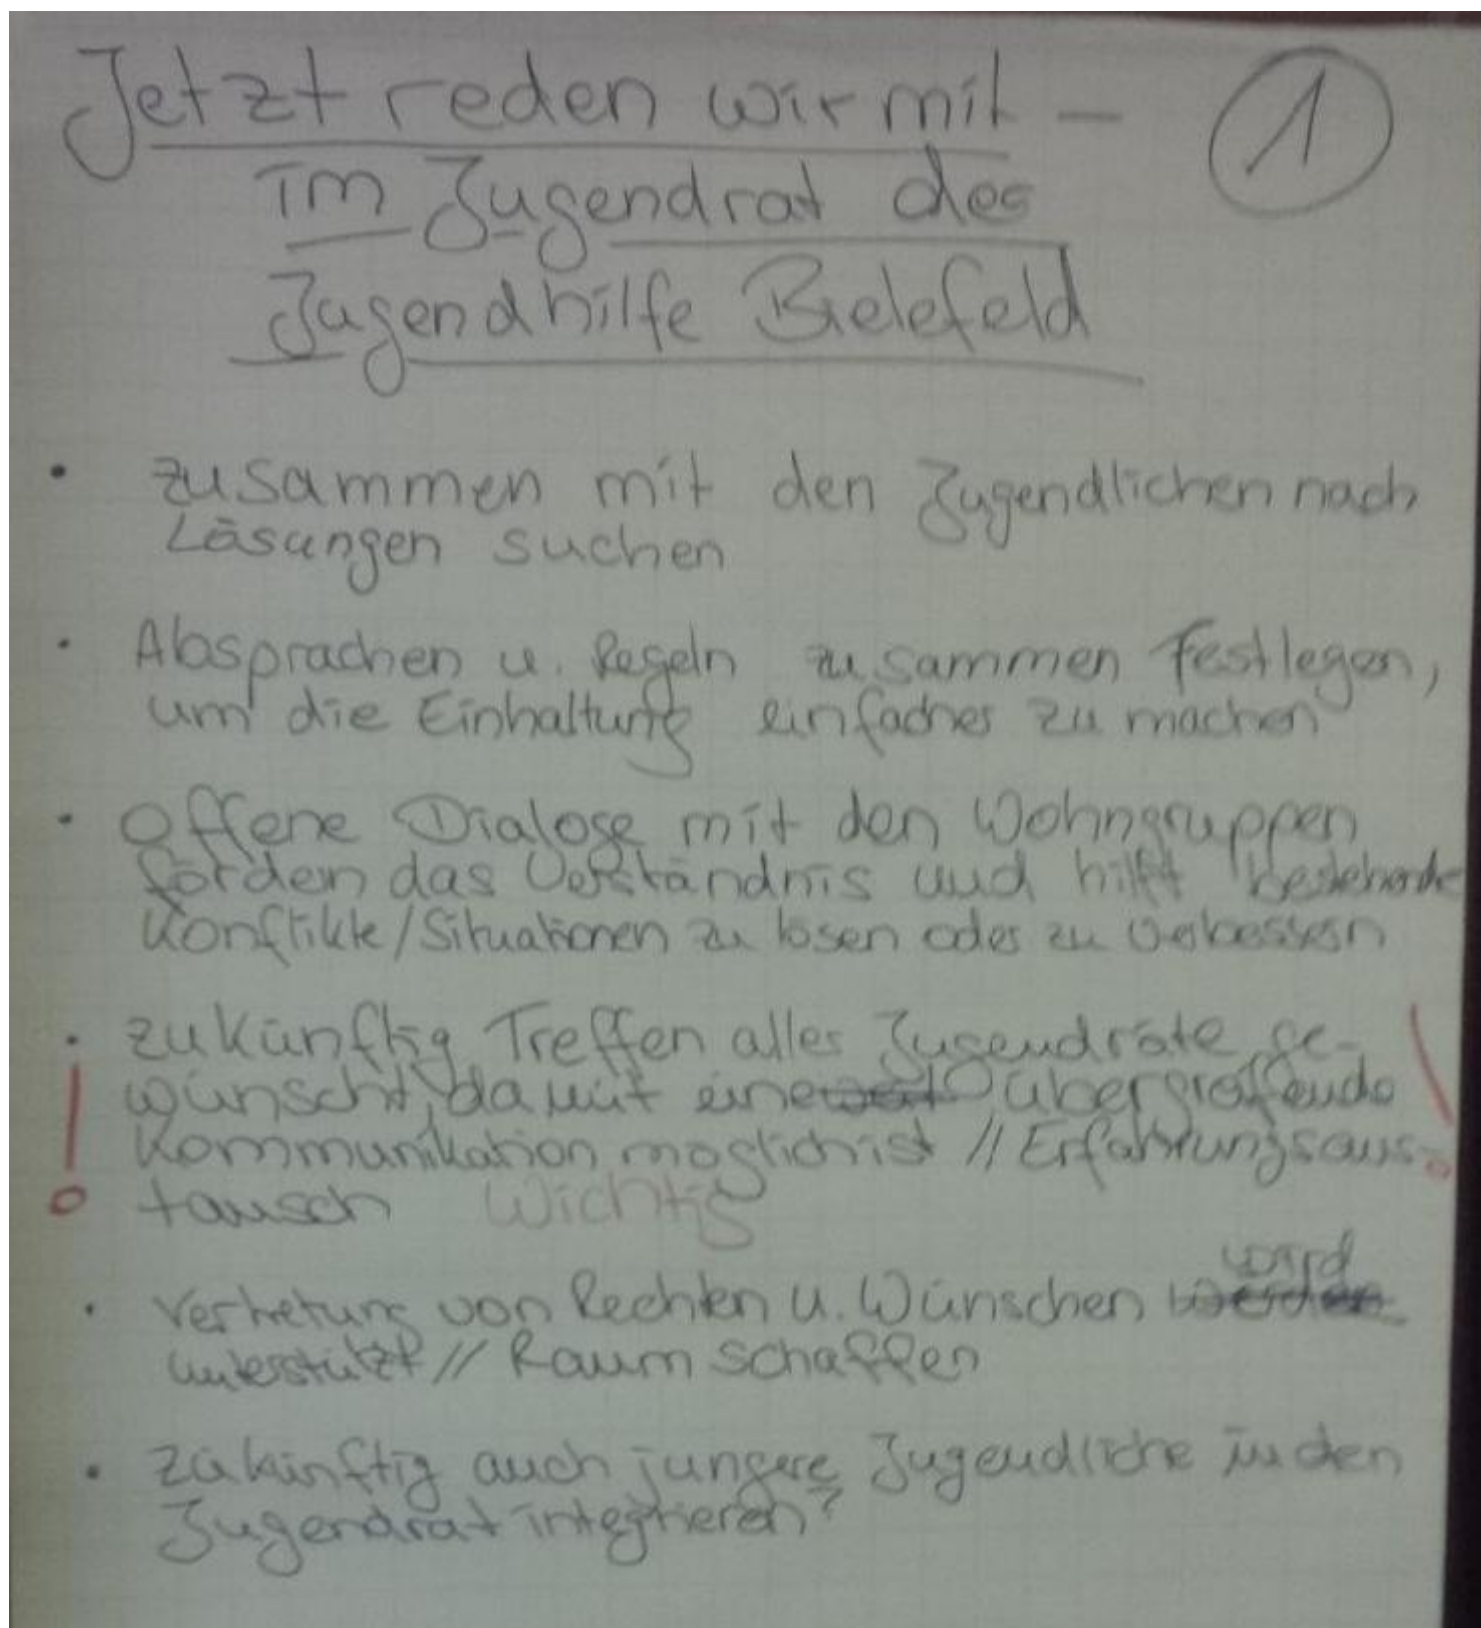 Jetzt reden wir mit – ①
im Jugendrat der
Jugendhilfe Bielefeld
• zusammen mit den Jugendlichen nach
Lösungen suchen
• Absprachen u. Regeln zusammen festlegen,
um die Einhaltung einfacher zu machen
• Offene Dialoge mit den Wohngruppen
fördern das Verständnis und hilft bestehende
Konflikte/Situationen zu lösen oder zu verbessern
• zukünftig Treffen aller Jugendräte ge-
wünscht, damit eine übergreifende
Kommunikation möglich ist // Erfahrungsaus-
tausch Wichtig
wird
• Vertretung von Rechten u. Wünschen werden
unterstützt // Raum schaffen
• zukünftig auch jüngere Jugendliche in den
Jugendrat integrieren?